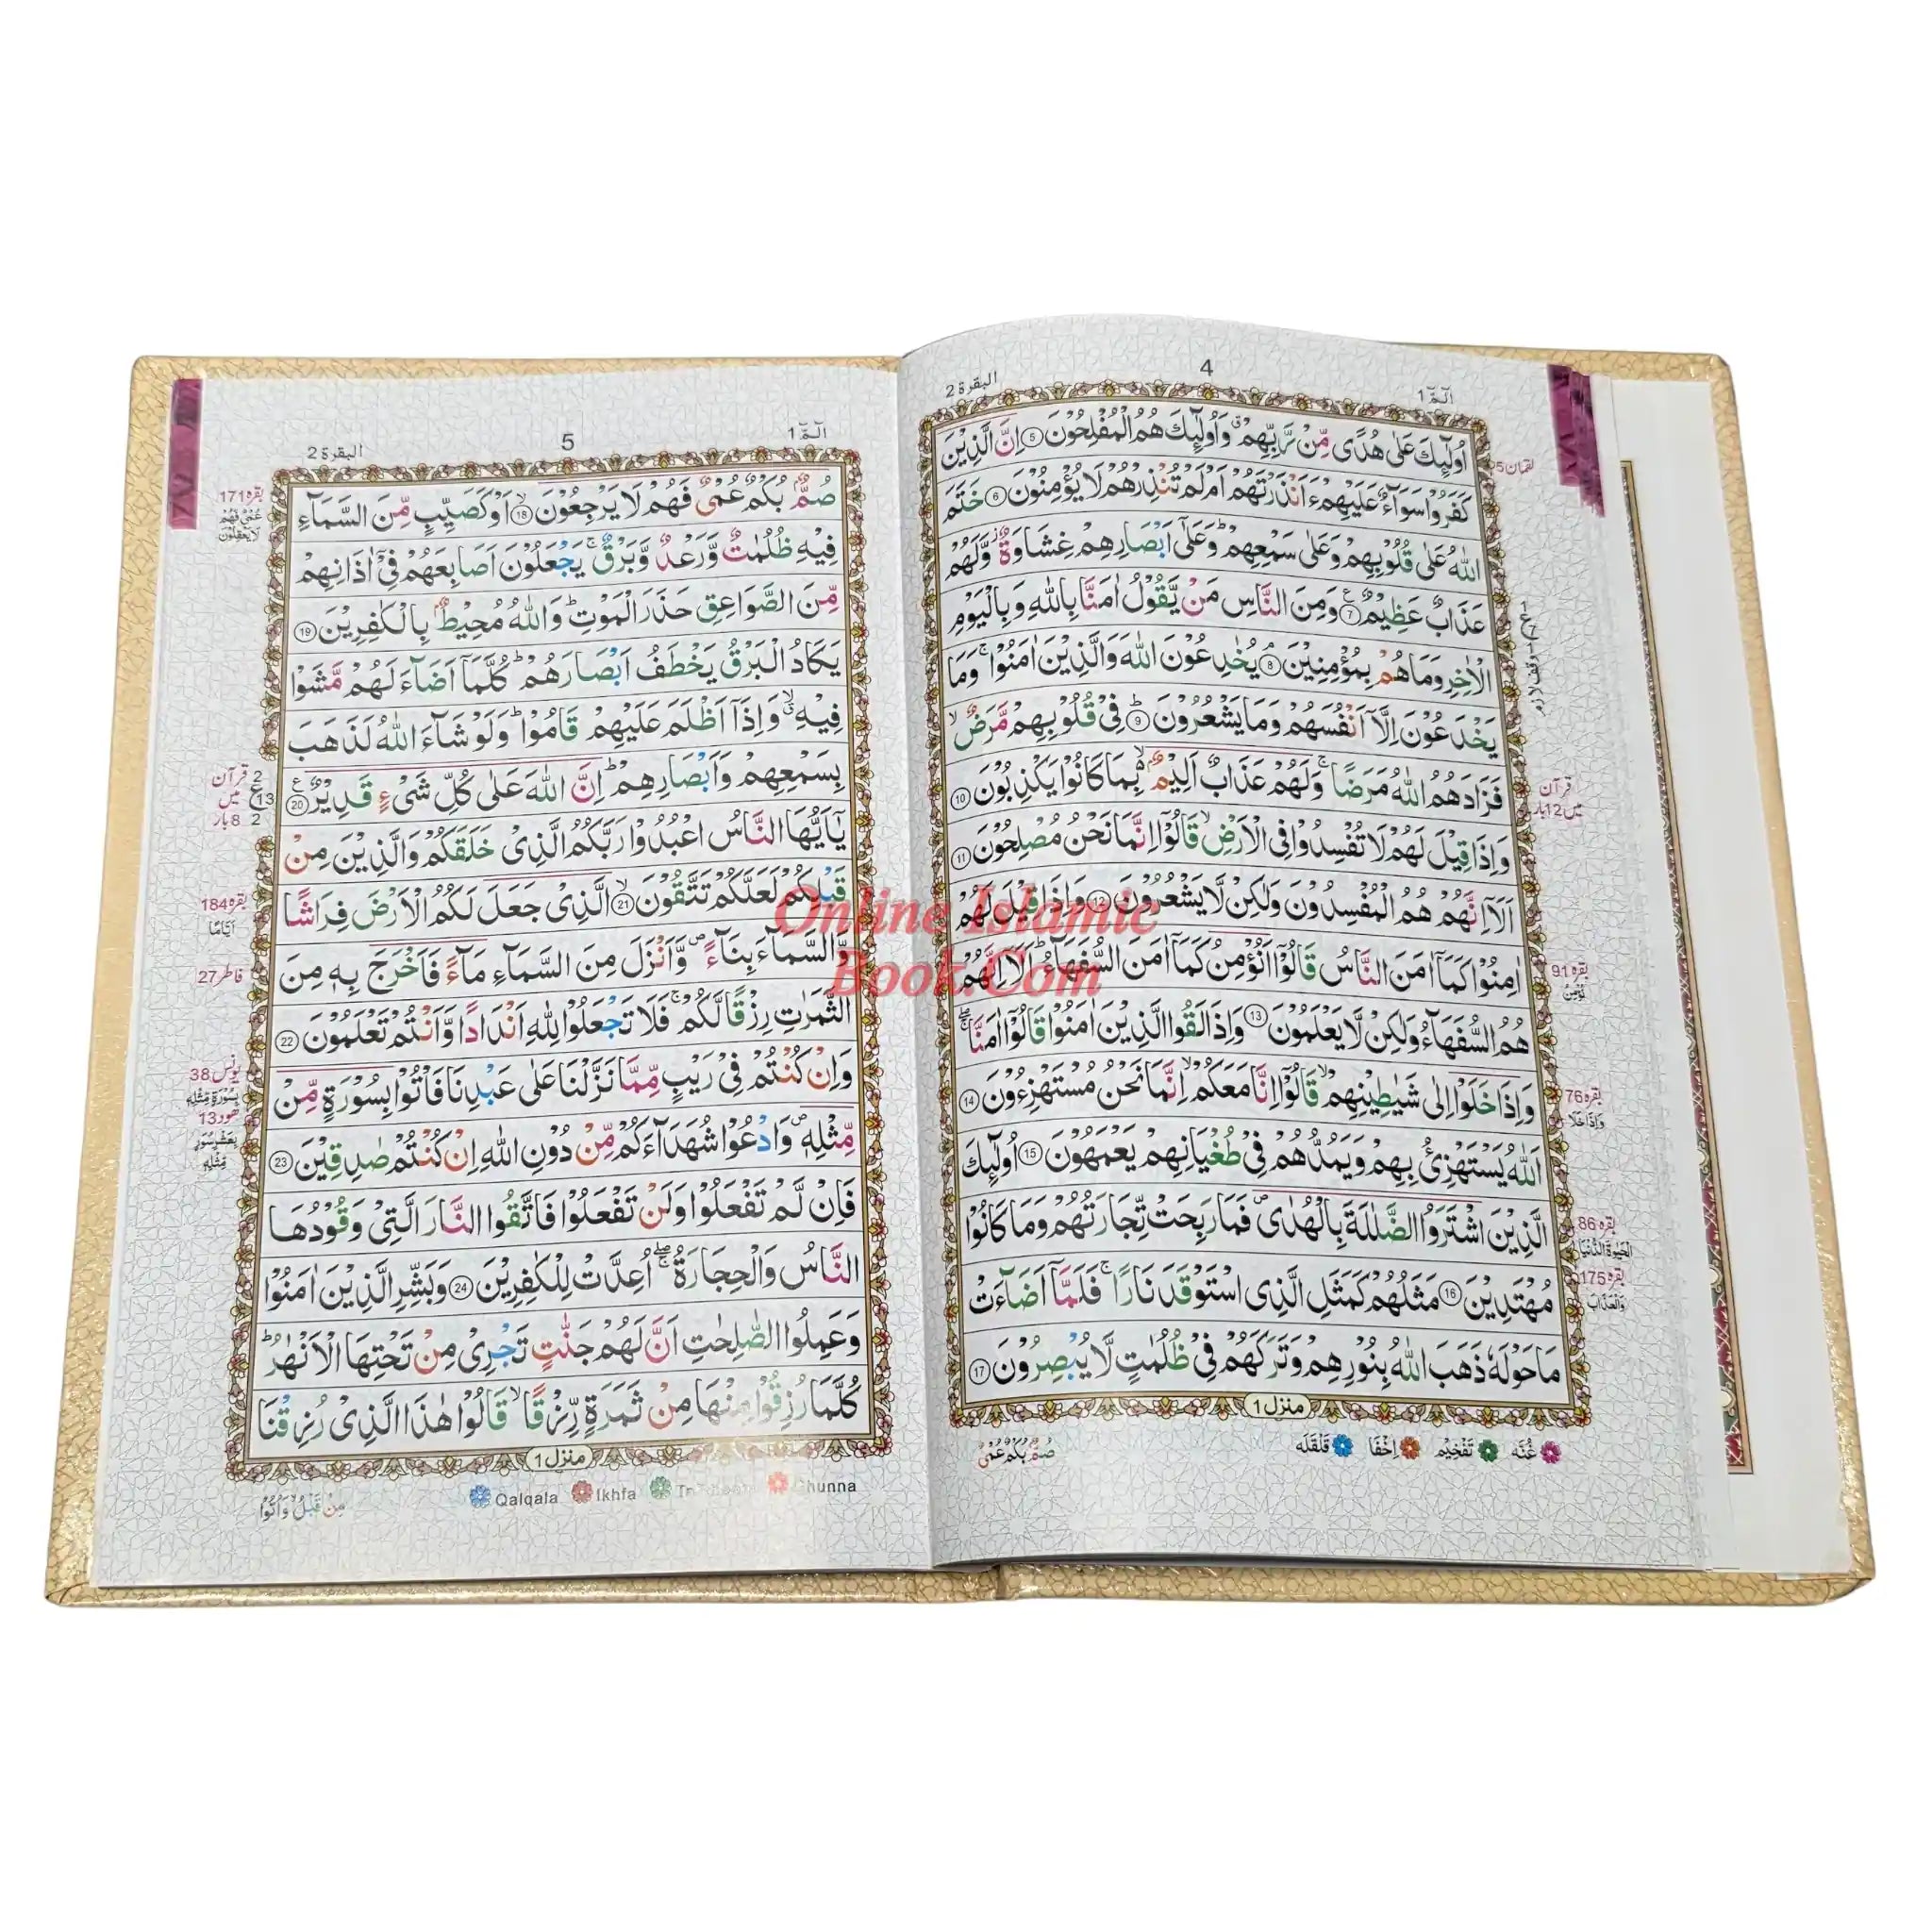 البقرة 2
4
الٓمّٓ 1
اُولٰٓئِكَ عَلٰى هُدًى مِّنْ رَّبِّهِمْ ۙ وَاُولٰٓئِكَ هُمُ الْمُفْلِحُوْنَ ⑤ اِنَّ الَّذِيْنَ
كَفَرُوْا سَوَآءٌ عَلَيْهِمْ ءَاَنْذَرْتَهُمْ اَمْ لَمْ تُنْذِرْهُمْ لَا يُؤْمِنُوْنَ ⑥ خَتَمَ
اللّٰهُ عَلٰى قُلُوْبِهِمْ وَعَلٰى سَمْعِهِمْ ؕ وَعَلٰٓى اَبْصَارِهِمْ غِشَاوَةٌ ۫ وَّلَهُمْ
عَذَابٌ عَظِيْمٌ ⑦ وَمِنَ النَّاسِ مَنْ يَّقُوْلُ اٰمَنَّا بِاللّٰهِ وَبِالْيَوْمِ
الْاٰخِرِ وَمَا هُمْ بِمُؤْمِنِيْنَ ⑧ يُخٰدِعُوْنَ اللّٰهَ وَالَّذِيْنَ اٰمَنُوْا ۚ وَمَا
يَخْدَعُوْنَ اِلَّآ اَنْفُسَهُمْ وَمَا يَشْعُرُوْنَ ⑨ؕ فِيْ قُلُوْبِهِمْ مَّرَضٌ ۙ
فَزَادَهُمُ اللّٰهُ مَرَضًا ۚ وَلَهُمْ عَذَابٌ اَلِيْمٌۢ ۙ بِمَا كَانُوْا يَكْذِبُوْنَ ⑩
وَاِذَا قِيْلَ لَهُمْ لَا تُفْسِدُوْا فِى الْاَرْضِ ۙ قَالُوْٓا اِنَّمَا نَحْنُ مُصْلِحُوْنَ ⑪
اَلَآ اِنَّهُمْ هُمُ الْمُفْسِدُوْنَ وَلٰكِنْ لَّا يَشْعُرُوْنَ ⑫ وَاِذَا قِيْلَ لَهُمْ
اٰمِنُوْا كَمَآ اٰمَنَ النَّاسُ قَالُوْٓا اَنُؤْمِنُ كَمَآ اٰمَنَ السُّفَهَآءُ ؕ اَلَآ اِنَّهُمْ
هُمُ السُّفَهَآءُ وَلٰكِنْ لَّا يَعْلَمُوْنَ ⑬ وَاِذَا لَقُوا الَّذِيْنَ اٰمَنُوْا قَالُوْٓا اٰمَنَّا ۖۚ
وَاِذَا خَلَوْا اِلٰى شَيٰطِيْنِهِمْ ۙ قَالُوْٓا اِنَّا مَعَكُمْ ۙ اِنَّمَا نَحْنُ مُسْتَهْزِءُوْنَ ⑭
اَللّٰهُ يَسْتَهْزِئُ بِهِمْ وَيَمُدُّهُمْ فِيْ طُغْيَانِهِمْ يَعْمَهُوْنَ ⑮ اُولٰٓئِكَ
الَّذِيْنَ اشْتَرَوُا الضَّلٰلَةَ بِالْهُدٰى ۪ فَمَا رَبِحَتْ تِّجَارَتُهُمْ وَمَا كَانُوْا
مُهْتَدِيْنَ ⑯ مَثَلُهُمْ كَمَثَلِ الَّذِى اسْتَوْقَدَ نَارًا ۚ فَلَمَّآ اَضَآءَتْ
مَا حَوْلَهٗ ذَهَبَ اللّٰهُ بِنُوْرِهِمْ وَتَرَكَهُمْ فِيْ ظُلُمٰتٍ لَّا يُبْصِرُوْنَ ⑰
منزل 1
غُنَّه تَفْخِيْم اِخْفَا قَلْقَلَه
صُمٌّۢ بُكْمٌ عُمْىٌ
لقمان 5
وقف لازم
قرآن
میں 12 بار
بقره 91
نُؤْمِنُ
بقره 76
وَاِذَا خَلَا
بقره 86
الْحَيٰوةَ الدُّنْيَا
بقره 175
وَالْعَذَابَ
البقرة 2
5
الٓمّٓ 1
صُمٌّۢ بُكْمٌ عُمْىٌ فَهُمْ لَا يَرْجِعُوْنَ ۙ⑱ اَوْ كَصَيِّبٍ مِّنَ السَّمَآءِ
فِيْهِ ظُلُمٰتٌ وَّرَعْدٌ وَّبَرْقٌ ۚ يَجْعَلُوْنَ اَصَابِعَهُمْ فِيْٓ اٰذَانِهِمْ
مِّنَ الصَّوَاعِقِ حَذَرَ الْمَوْتِ ؕ وَاللّٰهُ مُحِيْطٌۢ بِالْكٰفِرِيْنَ ⑲
يَكَادُ الْبَرْقُ يَخْطَفُ اَبْصَارَهُمْ ؕ كُلَّمَآ اَضَآءَ لَهُمْ مَّشَوْا
فِيْهِ ۙ وَاِذَآ اَظْلَمَ عَلَيْهِمْ قَامُوْا ؕ وَلَوْ شَآءَ اللّٰهُ لَذَهَبَ
بِسَمْعِهِمْ وَاَبْصَارِهِمْ ؕ اِنَّ اللّٰهَ عَلٰى كُلِّ شَىْءٍ قَدِيْرٌ ⑳
يٰٓاَيُّهَا النَّاسُ اعْبُدُوْا رَبَّكُمُ الَّذِىْ خَلَقَكُمْ وَالَّذِيْنَ مِنْ
قَبْلِكُمْ لَعَلَّكُمْ تَتَّقُوْنَ ۙ㉑ الَّذِىْ جَعَلَ لَكُمُ الْاَرْضَ فِرَاشًا
وَّالسَّمَآءَ بِنَآءً ۪ وَّاَنْزَلَ مِنَ السَّمَآءِ مَآءً فَاَخْرَجَ بِهٖ مِنَ
الثَّمَرٰتِ رِزْقًا لَّكُمْ ۚ فَلَا تَجْعَلُوْا لِلّٰهِ اَنْدَادًا وَّاَنْتُمْ تَعْلَمُوْنَ ㉒
وَاِنْ كُنْتُمْ فِيْ رَيْبٍ مِّمَّا نَزَّلْنَا عَلٰى عَبْدِنَا فَاْتُوْا بِسُوْرَةٍ مِّنْ
مِّثْلِهٖ ۪ وَادْعُوْا شُهَدَآءَكُمْ مِّنْ دُوْنِ اللّٰهِ اِنْ كُنْتُمْ صٰدِقِيْنَ ㉓
فَاِنْ لَّمْ تَفْعَلُوْا وَلَنْ تَفْعَلُوْا فَاتَّقُوا النَّارَ الَّتِيْ وَقُوْدُهَا
النَّاسُ وَالْحِجَارَةُ ۖۚ اُعِدَّتْ لِلْكٰفِرِيْنَ ㉔ وَبَشِّرِ الَّذِيْنَ اٰمَنُوْا
وَعَمِلُوا الصّٰلِحٰتِ اَنَّ لَهُمْ جَنّٰتٍ تَجْرِىْ مِنْ تَحْتِهَا الْاَنْهٰرُ ؕ
كُلَّمَا رُزِقُوْا مِنْهَا مِنْ ثَمَرَةٍ رِّزْقًا ۙ قَالُوْا هٰذَا الَّذِىْ رُزِقْنَا
منزل 1
Qalqala Ikhfa Ghunna
مِنْ قَبْلُ ۙ وَاُتُوْا
بقره 171
عُمْىٌ فَهُمْ
لَا يَعْقِلُوْنَ
2
ع
13
2
قرآن
میں
8 بار
بقره 184
اَيَّامًا
فاطر 27
يونس 38
بِسُوْرَةٍ مِّثْلِهٖ
هود 13
بِعَشْرِ سُوَرٍ
مِّثْلِهٖ
Online Islamic
Book.Com